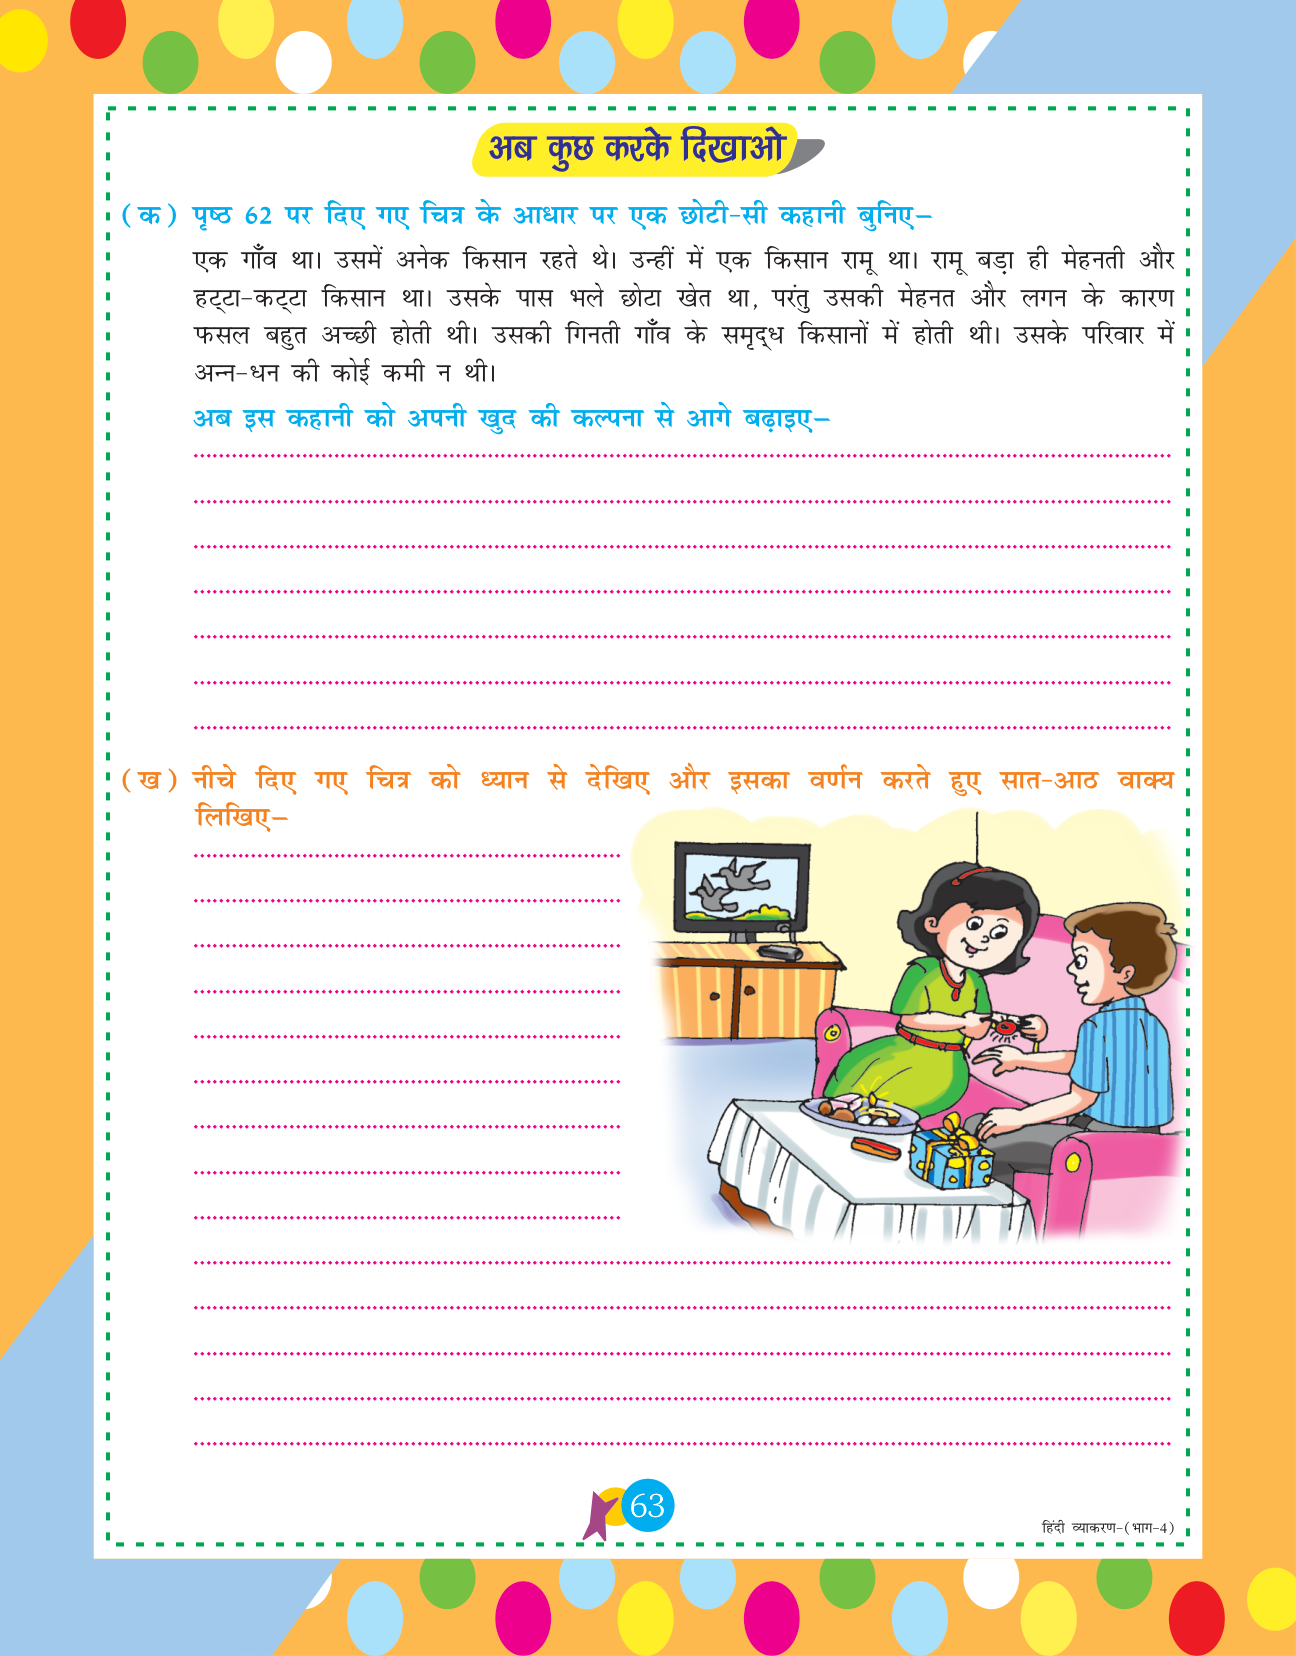 अब कुछ करके दिखाओ
(क) पृष्ठ 62 पर दिए गए चित्र के आधार पर एक छोटी-सी कहानी बुनिए–
एक गाँव था। उसमें अनेक किसान रहते थे। उन्हीं में एक किसान रामू था। रामू बड़ा ही मेहनती और
हट्टा-कट्टा किसान था। उसके पास भले छोटा खेत था, परंतु उसकी मेहनत और लगन के कारण
फसल बहुत अच्छी होती थी। उसकी गिनती गाँव के समृद्ध किसानों में होती थी। उसके परिवार में
अन्न-धन की कोई कमी न थी।
अब इस कहानी को अपनी खुद की कल्पना से आगे बढ़ाइए–
(ख) नीचे दिए गए चित्र को ध्यान से देखिए और इसका वर्णन करते हुए सात-आठ वाक्य
लिखिए–
63
हिंदी व्याकरण-(भाग-4)